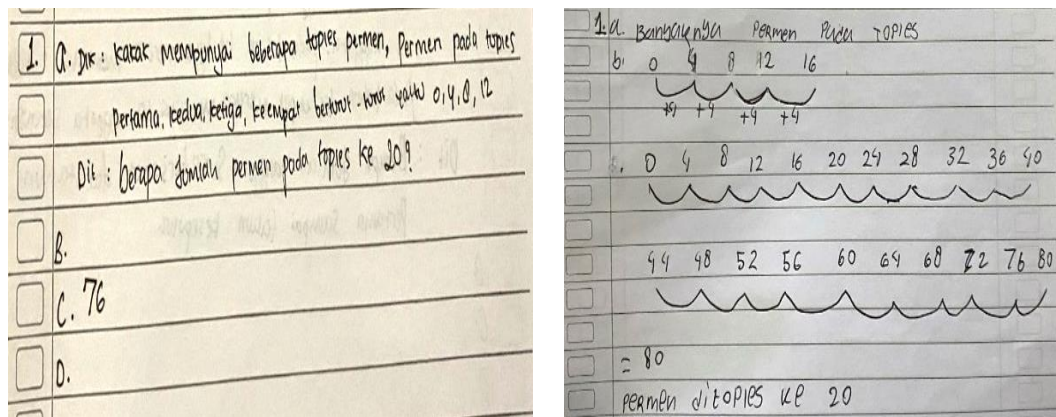 1. a. Dik : Kakak mempunyai beberapa toples permen, Permen pada toples
Pertama, kedua, ketiga, keempat berturut-turut yaitu 0, 4, 8, 12
Dit : berapa Jumlah permen pada toples ke 20?
B.
C. 76
D.
1. a. Banyaknya PERMEN Pada TOPLES
b. 0 4 8 12 16
+4 +4 +4 +4
c. 0 4 8 12 16 20 24 28 32 36 40
44 48 52 56 60 64 68 72 76 80
= 80
PERMEN diTOPLES KE 20